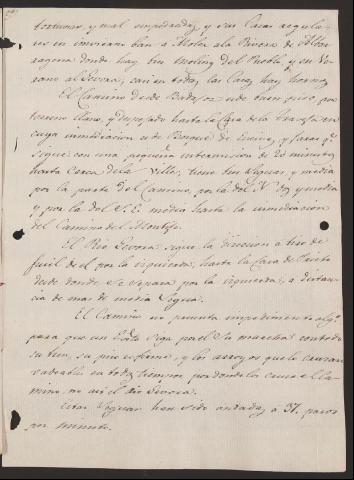 tortuosas, y mal empedradas, y sus Casas regula-
res en invierno ban a Moler ala Rivera de Albar-
ragena donde hay tres molinos del Pueblo, y en Ve-
rano al Jevora, casi en todas las Casas hay hornos
El Camino desde Badajoz es de buen piso por
terreno llano, y despejado hasta la Casa de la
cuya inmediacion es de Bosque de Encina, y Jaras qe.
sigue con una pequeña intermision de 20 minutos
hasta Cerca dela Villa, tiene tres Leguas y media
por la parte del Camino, por la del N. dos y media
y por la del S.E. media hasta la inmediacion
del Camino del Montijo.
El Rio Jevora, sigue la direccion a tiro de
fusil de el por la izquierda, hasta la Casa de
desde donde se separa por la izquierda, a distan-
cia de mas de media Legua.
El Camino no presenta impedimento algo.
para que un Exto. siga por el su marcha con todo
su tren, su piso es firme, y los arroyos que le cruzan
vadeables en todos tiempos por donde los cruza el Ca-
mino, no asi el Rio Jevora.
Estas Leguas han sido andadas a 37. pasos
por minuto.